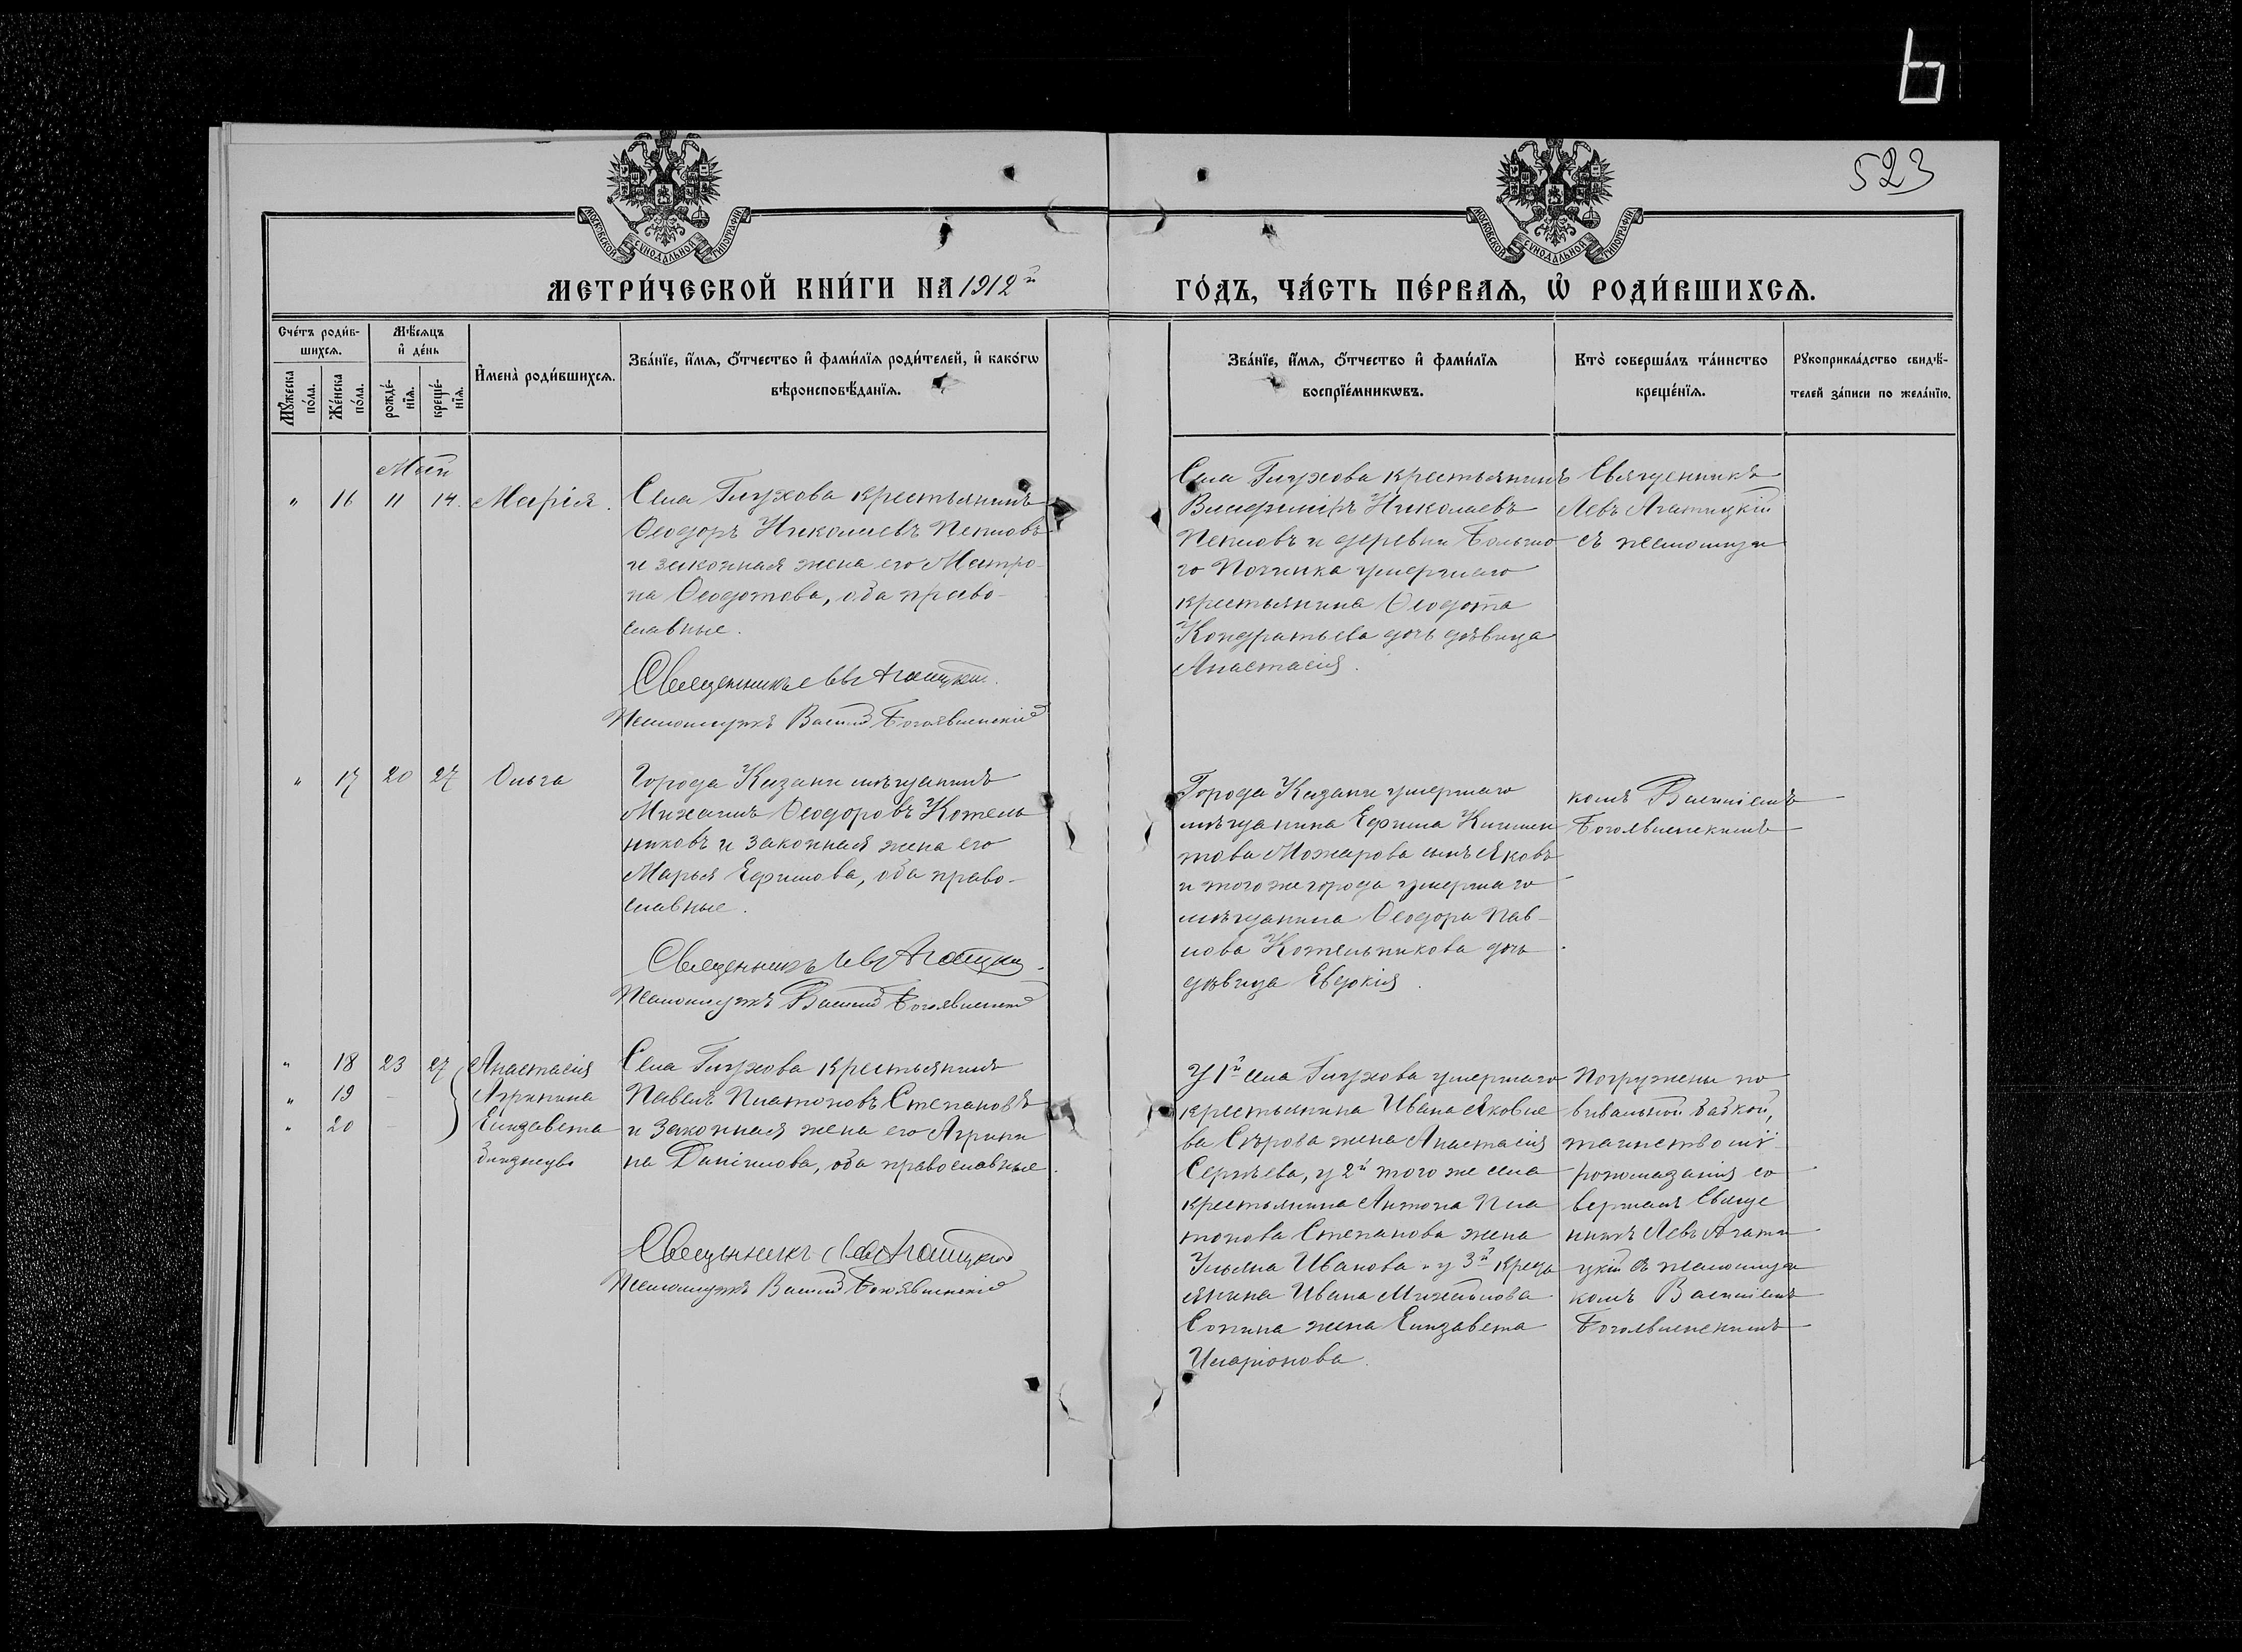 523
МОСКОВСКОЙ СѴНОДАЛЬНОЙ ТИПОГРАФІИ
МОСКОВСКОЙ СѴНОДАЛЬНОЙ ТИПОГРАФІИ
МЕТРИ́ЧЕСКОЙ КНИ́ГИ НА 1912й
ГО́ДЪ, ЧА́СТЬ ПЕ́РВАЯ, Ѡ҆ РОДИ́ВШИХСЯ.
Сче́тъ роди́в-
шихся.
Мꙋ́жеска
по́ла.
Же́нска
по́ла.
Мѣ́сяцъ
и҆ де́нь
рожде́-
нїѧ.
креще́-
нїѧ.
И҆мена̀ роди́вшихся.
Зва́нїе, и҆́мя, ѻ҆́тчество и҆ фами́лїя роди́телей, и҆ како́гѡ
вѣроисповѣ́данїя.
Зва́нїе, и҆́мя, ѻ҆́тчество и҆ фами́лїя
воспрїе́мникѡвъ.
Кто̀ соверша́лъ та́инство
креще́нїя.
Рꙋкоприкла́дство свидѣ́-
телей за́писи по жела́нїю.
Май
" 16 11 14. Марія.
Села Глухова крестьянинъ
Ѳеодоръ Николаевъ Пекловъ
и законная жена его Матро-
на Ѳеодотова, оба право-
славные.
Священникъ Левъ Агатицкій.
Псаломщикъ Василій Богоявленскій
Села Глухова крестьянинъ
Владиміръ Николаевъ
Пекловъ и деревни Большо
го Починка умершаго
крестьянина Ѳеодота
Кондратьева дочь дѣвица
Анастасія.
Священникъ
Левъ Агатицкій
съ псаломщи
" 17 20 27 Ольга
Города Казани мѣщанинъ
Михаилъ Ѳеодоровъ Котель
никовъ и законная жена его
Марья Ефимова, оба право-
славные.
Священникъ Левъ Агатицкій.
Псаломщикъ Василій Богоявленскій
Города Казани умершаго
мѣщанина Ефима Климен
това Можарова сынъ Яковъ
и того же города умершаго
мѣщанина Ѳеодора Пав-
лова Котельникова дочь
дѣвица Евдокія.
комъ Василіемъ
Богоявленскимъ
" 18 23 27 Анастасія
" 19 — Агрипина
" 20 — Елизавета
близнецы
Села Глухова крестьянинъ
Павелъ Платоновъ Степановъ
и законная жена его Агрипи
на Даніилова, оба православные.
Священникъ Левъ Агатицкій
Псаломщикъ Василій Богоявленскій
У 1й села Глухова умершаго
крестьянина Ивана Яковле
ва Сѣрова жена Анастасія
Сергѣева, у 2й того же села
крестьянина Антона Пла
тонова Степанова жена
Ульяна Иванова и у 3й кресть
янина Ивана Михайлова
Сонина жена Елизавета
Иларіонова.
Погружены по
вивальной бабкой,
таинство мѵ-
ропомазанія со
вершалъ Свяще
нникъ Левъ Агати
цкій съ псаломщи
комъ Василіемъ
Богоявленскимъ